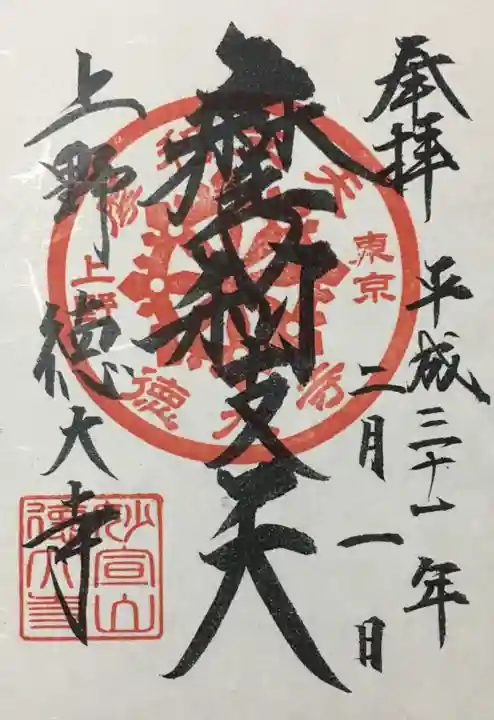 奉拝
平成三十一年
二月一日
摩利支天
上野 徳大寺
東京
上野
摩利支天
徳大寺
妙宣山
徳大寺